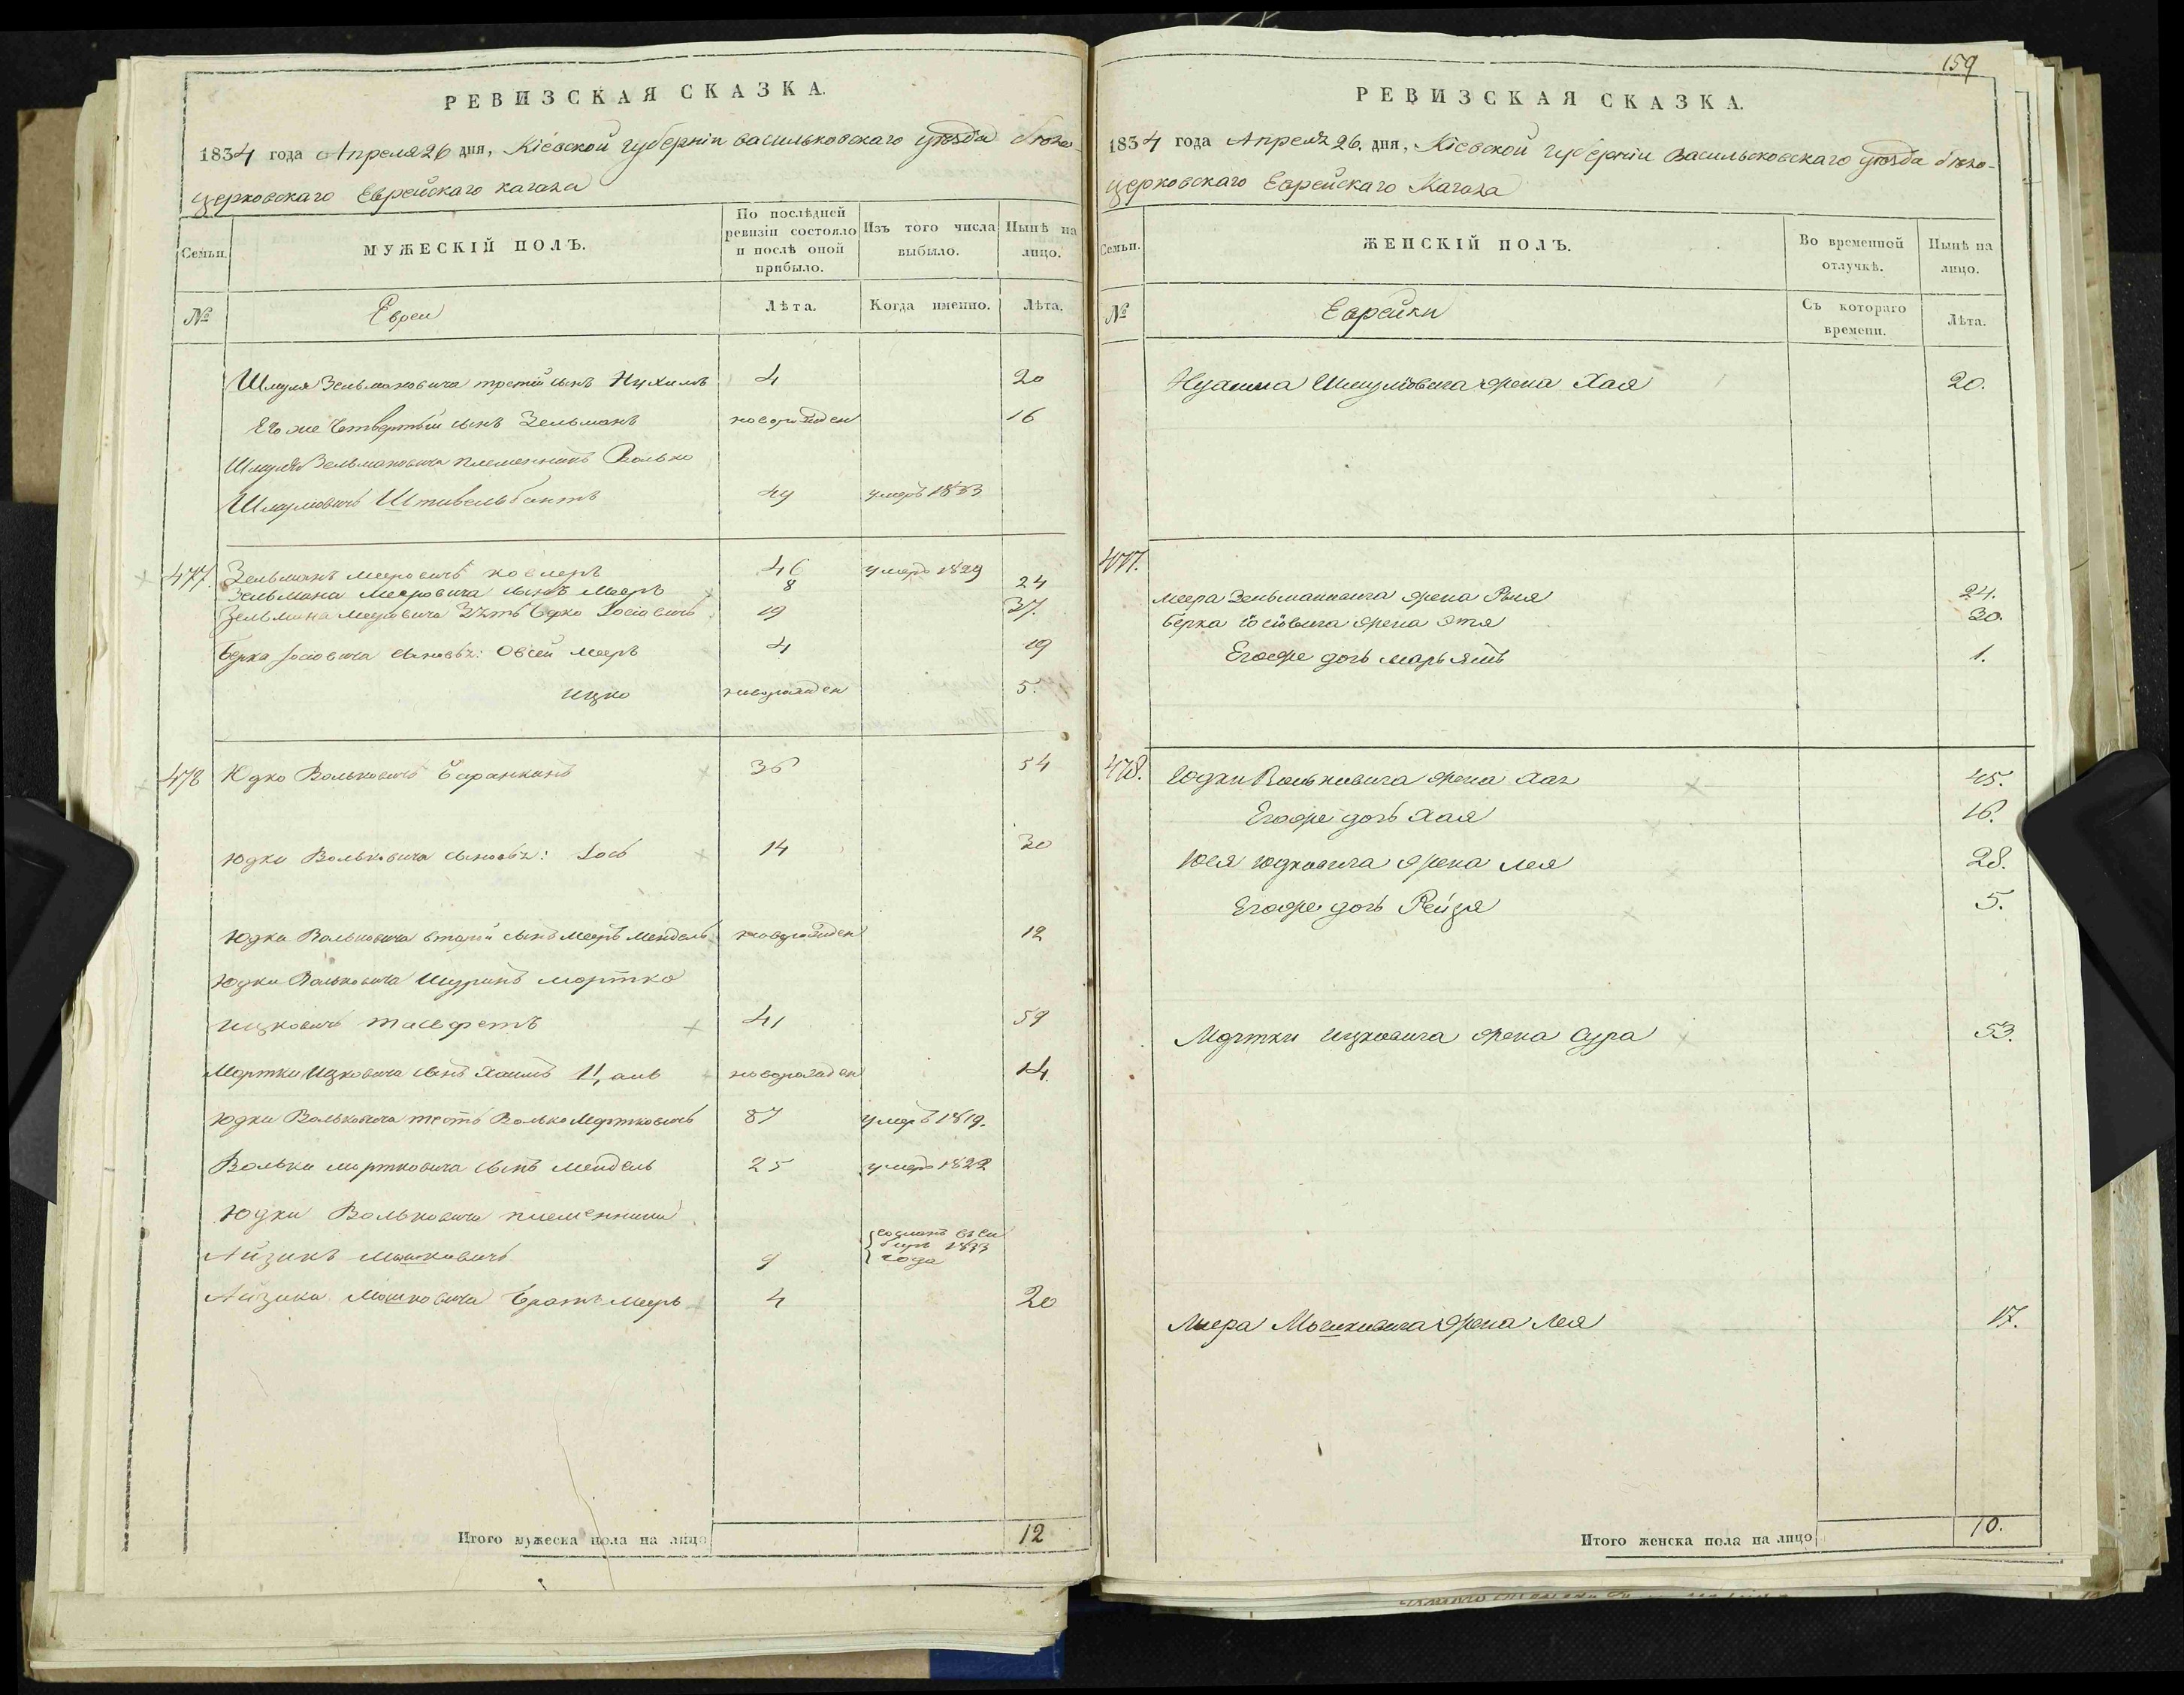 РЕВИЗСКАЯ СКАЗКА.
1834 года Апреля 26 дня, Кіевской губерніи васильковскаго уѣзда бѣло-
церковскаго Еврейскаго кагала
Семьи.
МУЖЕСКІЙ ПОЛЪ.
По послѣдней ревизіи состояло и послѣ оной прибыло.
Изъ того числа выбыло.
Нынѣ на лицо.
№
Евреи
Лѣта.
Когда именно.
Лѣта.
Шмуля Зельмановича третій сынъ Нухимъ 4 20
Его же Четвертый сынъ Зельманъ новорожден 16
Шмуля Зельмановича племенникъ Волько
Шмулювичъ Штивельбантъ 49 умеръ 1833
477. Зельманъ мееровичъ ковлеръ 46 умеръ 1829
Зельмана Мееровича сынъ Мееръ 8 24
Зельмана Мееровича Зять Берко Іосіовичъ 19 37.
Берка Іосіовича сыновья: Овсей мееръ 4 19
ицко новорожден 5.
478 Юдко Вольковичъ Баранкинъ 36 54
Юдки Вольковича сыновья: Іось 14 30
Юдки Вольковича вторый сынъ Мееръ Мендель новорожден 12
Юдки Вольковича Шуринъ мортко
ицковичъ 41 59
Мортки Ицковича сынъ Хаимъ новорожден 14.
Юдки Вольковича тесть Волько Мортковичъ 87 умеръ 1819.
Вольки мортковича сынъ Мендель 25 умеръ 1822
Юдки Вольковича племенники
Айзикъ Мошковичъ 9 сосланъ въ Сибирь 1833 года
Айзика Мошковича братъ Мееръ 4 20
Итого мужеска пола на лицо 12
159
РЕВИЗСКАЯ СКАЗКА.
1834 года Апреля 26. дня, Кіевской губерніи Васильковскаго уѣзда бѣло-
церковскаго Еврейскаго Кагала
Семьи.
ЖЕНСКІЙ ПОЛЪ.
Во временной отлучкѣ.
Нынѣ на лицо.
№
Еврейки
Съ котораго времени.
Лѣта.
Шмулювича жена Хая 20.
477.
Меера Зельмановича жена Рыся 24.
Берка Іосіовича жена Этя 30.
Егоже дочь марьямъ 1.
478. Юдки Вольковича жена 45.
Егоже дочь Хая 16.
Іося Юдковича жена Лея 28.
Егоже дочь Рейзя 5.
Мортки ицковича жена Сура 53.
Меера Мошковича жена Лея 17.
Итого женска пола на лицо 10.